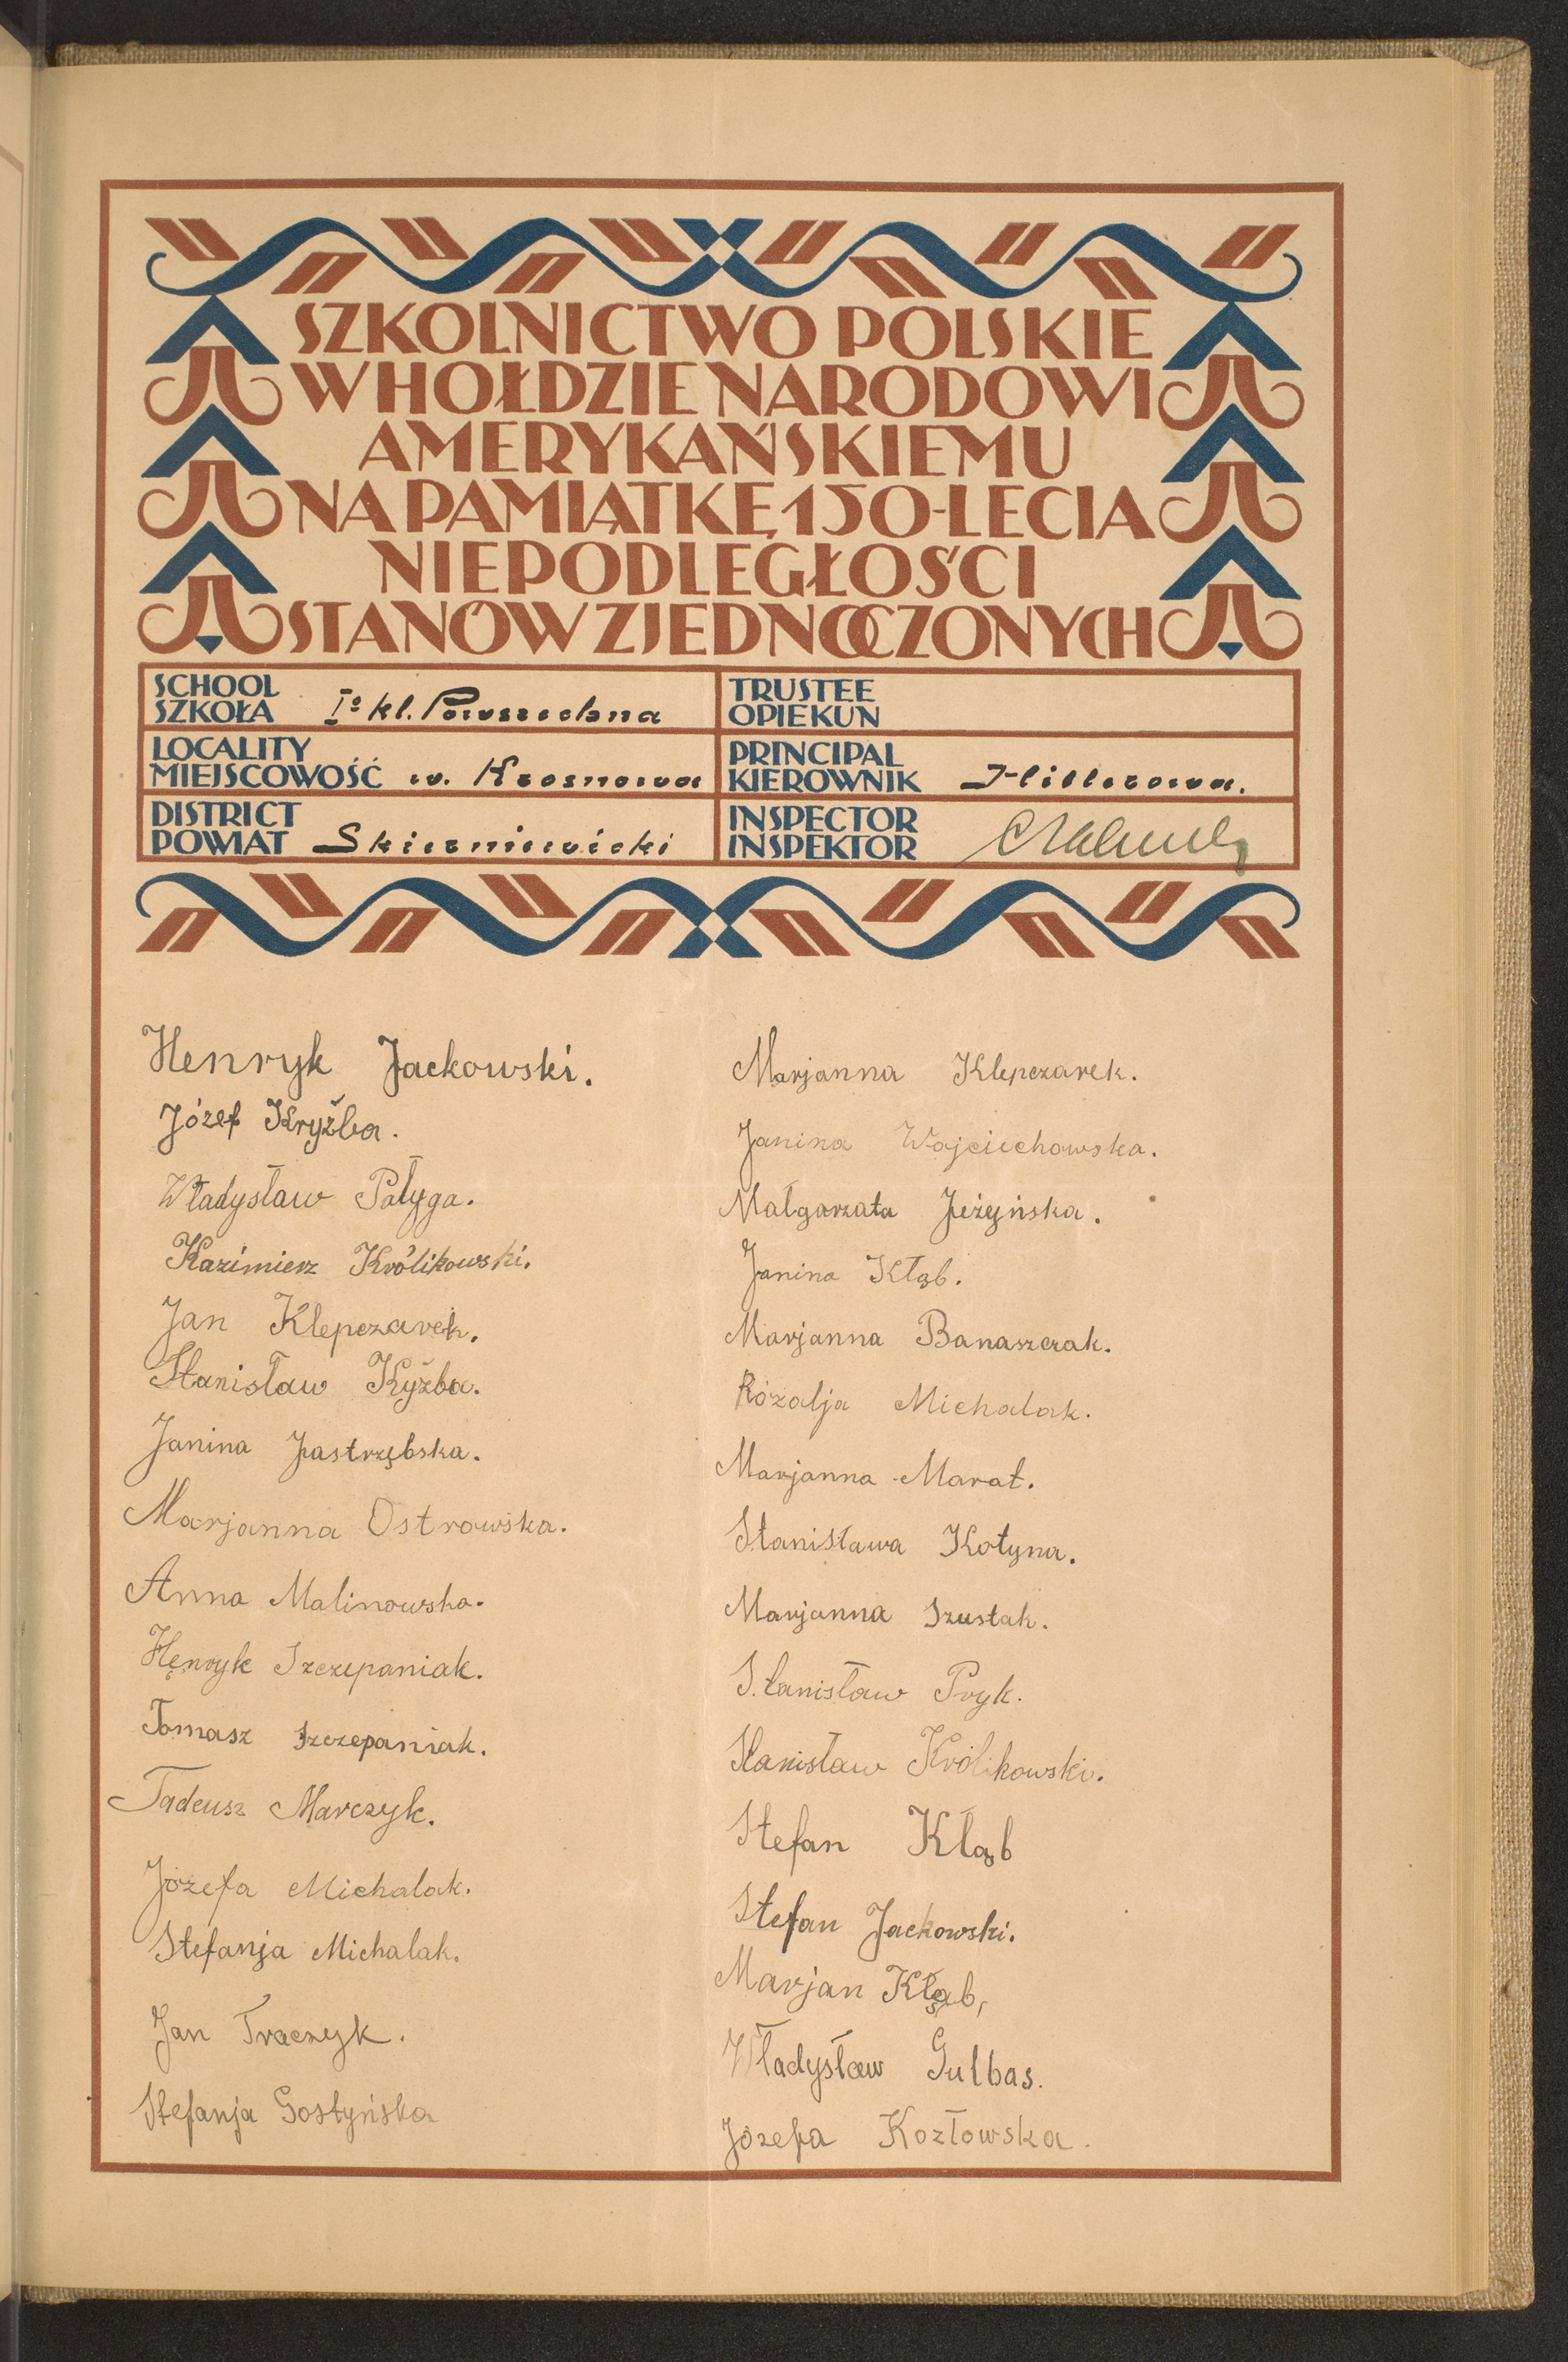 SZKOLNICTWO POLSKIE
W HOŁDZIE NARODOWI
AMERYKAŃSKIEMU
NA PAMIĄTKĘ 150-LECIA
NIEPODLEGŁOŚCI
STANÓW ZJEDNOCZONYCH
SCHOOL
SZKOŁA Io kl. Powszechna
LOCALITY
MIEJSCOWOŚĆ w. Krosnowa
DISTRICT
POWIAT Skierniewicki
TRUSTEE
OPIEKUN
PRINCIPAL
KIEROWNIK Hillerowa.
INSPECTOR
INSPEKTOR
Henryk Jackowski.
Józef Kryżba.
Władysław Pałyga.
Kazimierz Królikowski.
Jan Klepczarek.
Stanisław Kyżba.
Janina Jastrzębska.
Marjanna Ostrowska.
Anna Malinowska.
Henryk Szczepaniak.
Tomasz Szczepaniak.
Tadeusz Marczyk.
Józefa Michalak.
Stefanja Michalak.
Jan Traczyk.
Stefanja Gostyńska
Marjanna Klepczarek.
Janina Wojciechowska.
Małgorzata Jeżyńska.
Janina Kłąb.
Marjanna Banaszczak.
Rózalja Michalak.
Marjanna Marat.
Stanisława Kotyna.
Marjanna Szustak.
Stanisław Pryk.
Stanisław Królikowski.
Stefan Kłąb
Stefan Jackowski.
Marjan Kłąb,
Władysław Gulbas.
Józefa Kozłowska.